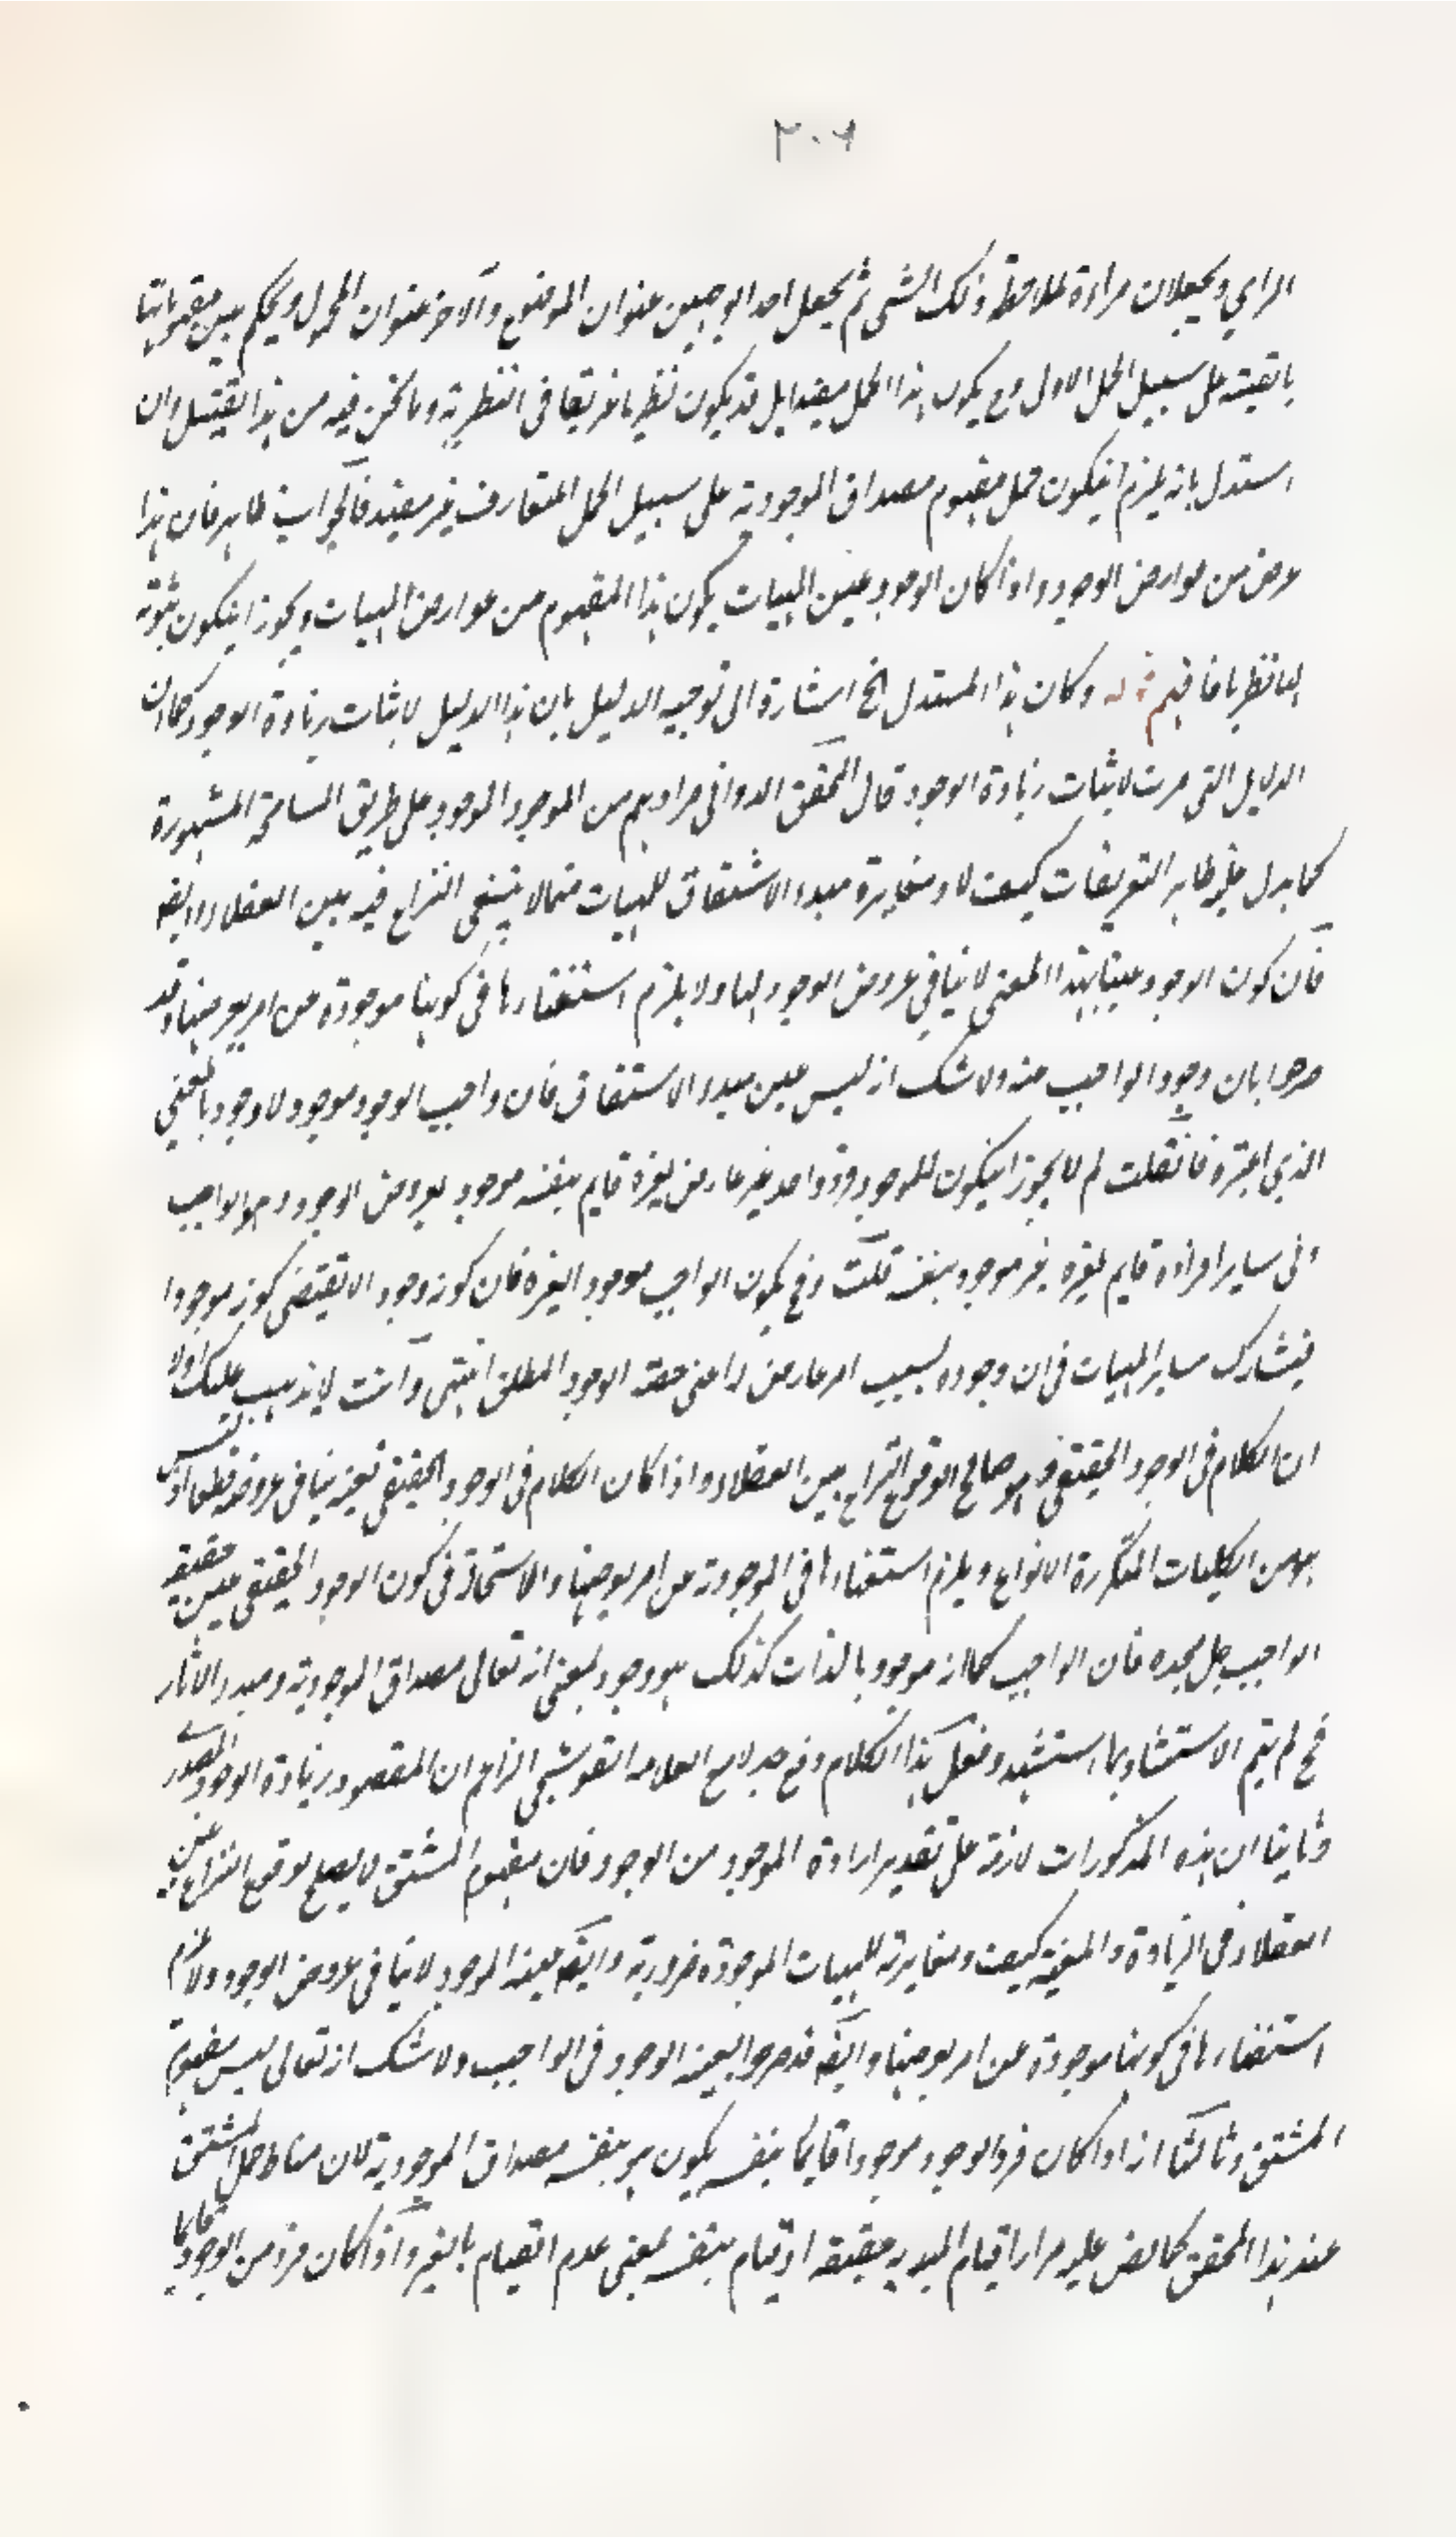 ٢٠٦
الراي ويجعلان مراءة لملاحظة ذلك الشي ثم يجعل احد الوجهين عنوان الموضوع والآخر عنوان المحمول ويحكم بين مفهوماتها
على سبيل الحمل الاول وح يكون هذا الحمل مفيدا بل قد يكون نظريا في النظرية وما نحن فيه من هذا القبيل وان
استدل بانه يلزم ان يكون حمل مفهوم مصداق الموجودية على سبيل الحمل المتعارف غير مفيد فالجواب ظاهر فان هذا
عرض من عوارض الوجود واذا كان الوجود عين المهيات يكون هذا المفهوم من عوارض المهيات ويجوز ان يكون ثبوته
لها نظريا فافهم قوله وكان هذا المستدل الخ اشارة الى توجيه الدليل بان هذا الدليل لاثبات زيادة الوجود كما ان
الدلايل التي مرت لاثبات زيادة الوجود قال المحقق الدواني مرادهم من الوجود الموجود على طريق المسامحة المشهورة
كما يدل عليه ظاهر التعريفات كيف لا ومغايرة مبدء الاشتقاق للمهيات مما لا ينبغي النزاع فيه بين العقلاء وايضا
فان كون الوجود عينا بهذا المعنى لا ينافي عروض الوجود لها ولا يلزم استغناءها في كونها موجودة عن امر يعرضها وقد
صرحوا بان وجود الواجب عينه ولا شك انه ليس عين مبدء الاشتقاق فان واجب الوجود موجود لا وجود بالمعنى
الذي اعتبره فان قلت لم لا يجوز ان يكون للوجود فرد واحد غير عارض لغيره قايم بنفسه موجود بعروض الوجود وهو الواجب
وفي ساير افراده قايم لغيره غير موجود بنفسه قلت وح يكون الواجب موجودا لغيره فان كونه وجودا لا يقتضي كونه موجودا
فيشارك ساير المهيات في ان وجوده بسبب امر عارض له اعني حصة الوجود المطلق انتهى وانت لا يذهب عليك اولا
ان الكلام في الوجود الحقيقي وهو صالح لوقوع النزاع بين العقلاء واذا كان الكلام في الوجود الحقيقي فعينيته ينافي عروضه قطعا اذ ليس
هو من الكليات المتكررة الانواع ويلزم استغناءها في الموجودية عن امر يعرضها ولا استحالة في كون الوجود الحقيقي عين حقيقة
الواجب جل مجده فان الواجب كما انه موجود بالذات كذلك هو وجود بمعنى انه تعالى مصداق الموجودية ومبدء الآثار
فح لم يتم الاستشهاد بما استشهد به ولعل هذا الكلام وقع جدلا مع العلامة القوشجي الزاعم ان المقصود زيادة الوجود المصدري
وثانيا ان هذه المذكورات لازمة على تقدير ارادة الموجود من الوجود فان مفهوم المشتق لا يصلح لوقوع النزاع بين
العقلاء في الزيادة والعينية كيف ومغايرته للمهيات الموجودة ضرورية وايضا عينية الموجود لا ينافي عروض الوجود ولا يلزم
استغناءها في كونها موجودة عن امر يعرضها وايضا قد صرحوا بعينية الوجود في الواجب ولا شك انه تعالى ليس مفهوم
المشتق وثالثا انه اذا كان فرد الوجود موجودا قايما بنفسه يكون هو بنفسه مصداق الموجودية لان مناط حمل المشتق
عند هذا المحقق كما نص عليه مرارا قيام المبدء به حقيقة او قيامه بنفسه بمعنى عدم القيام بالغير واذا كان فرد من الوجود قايما